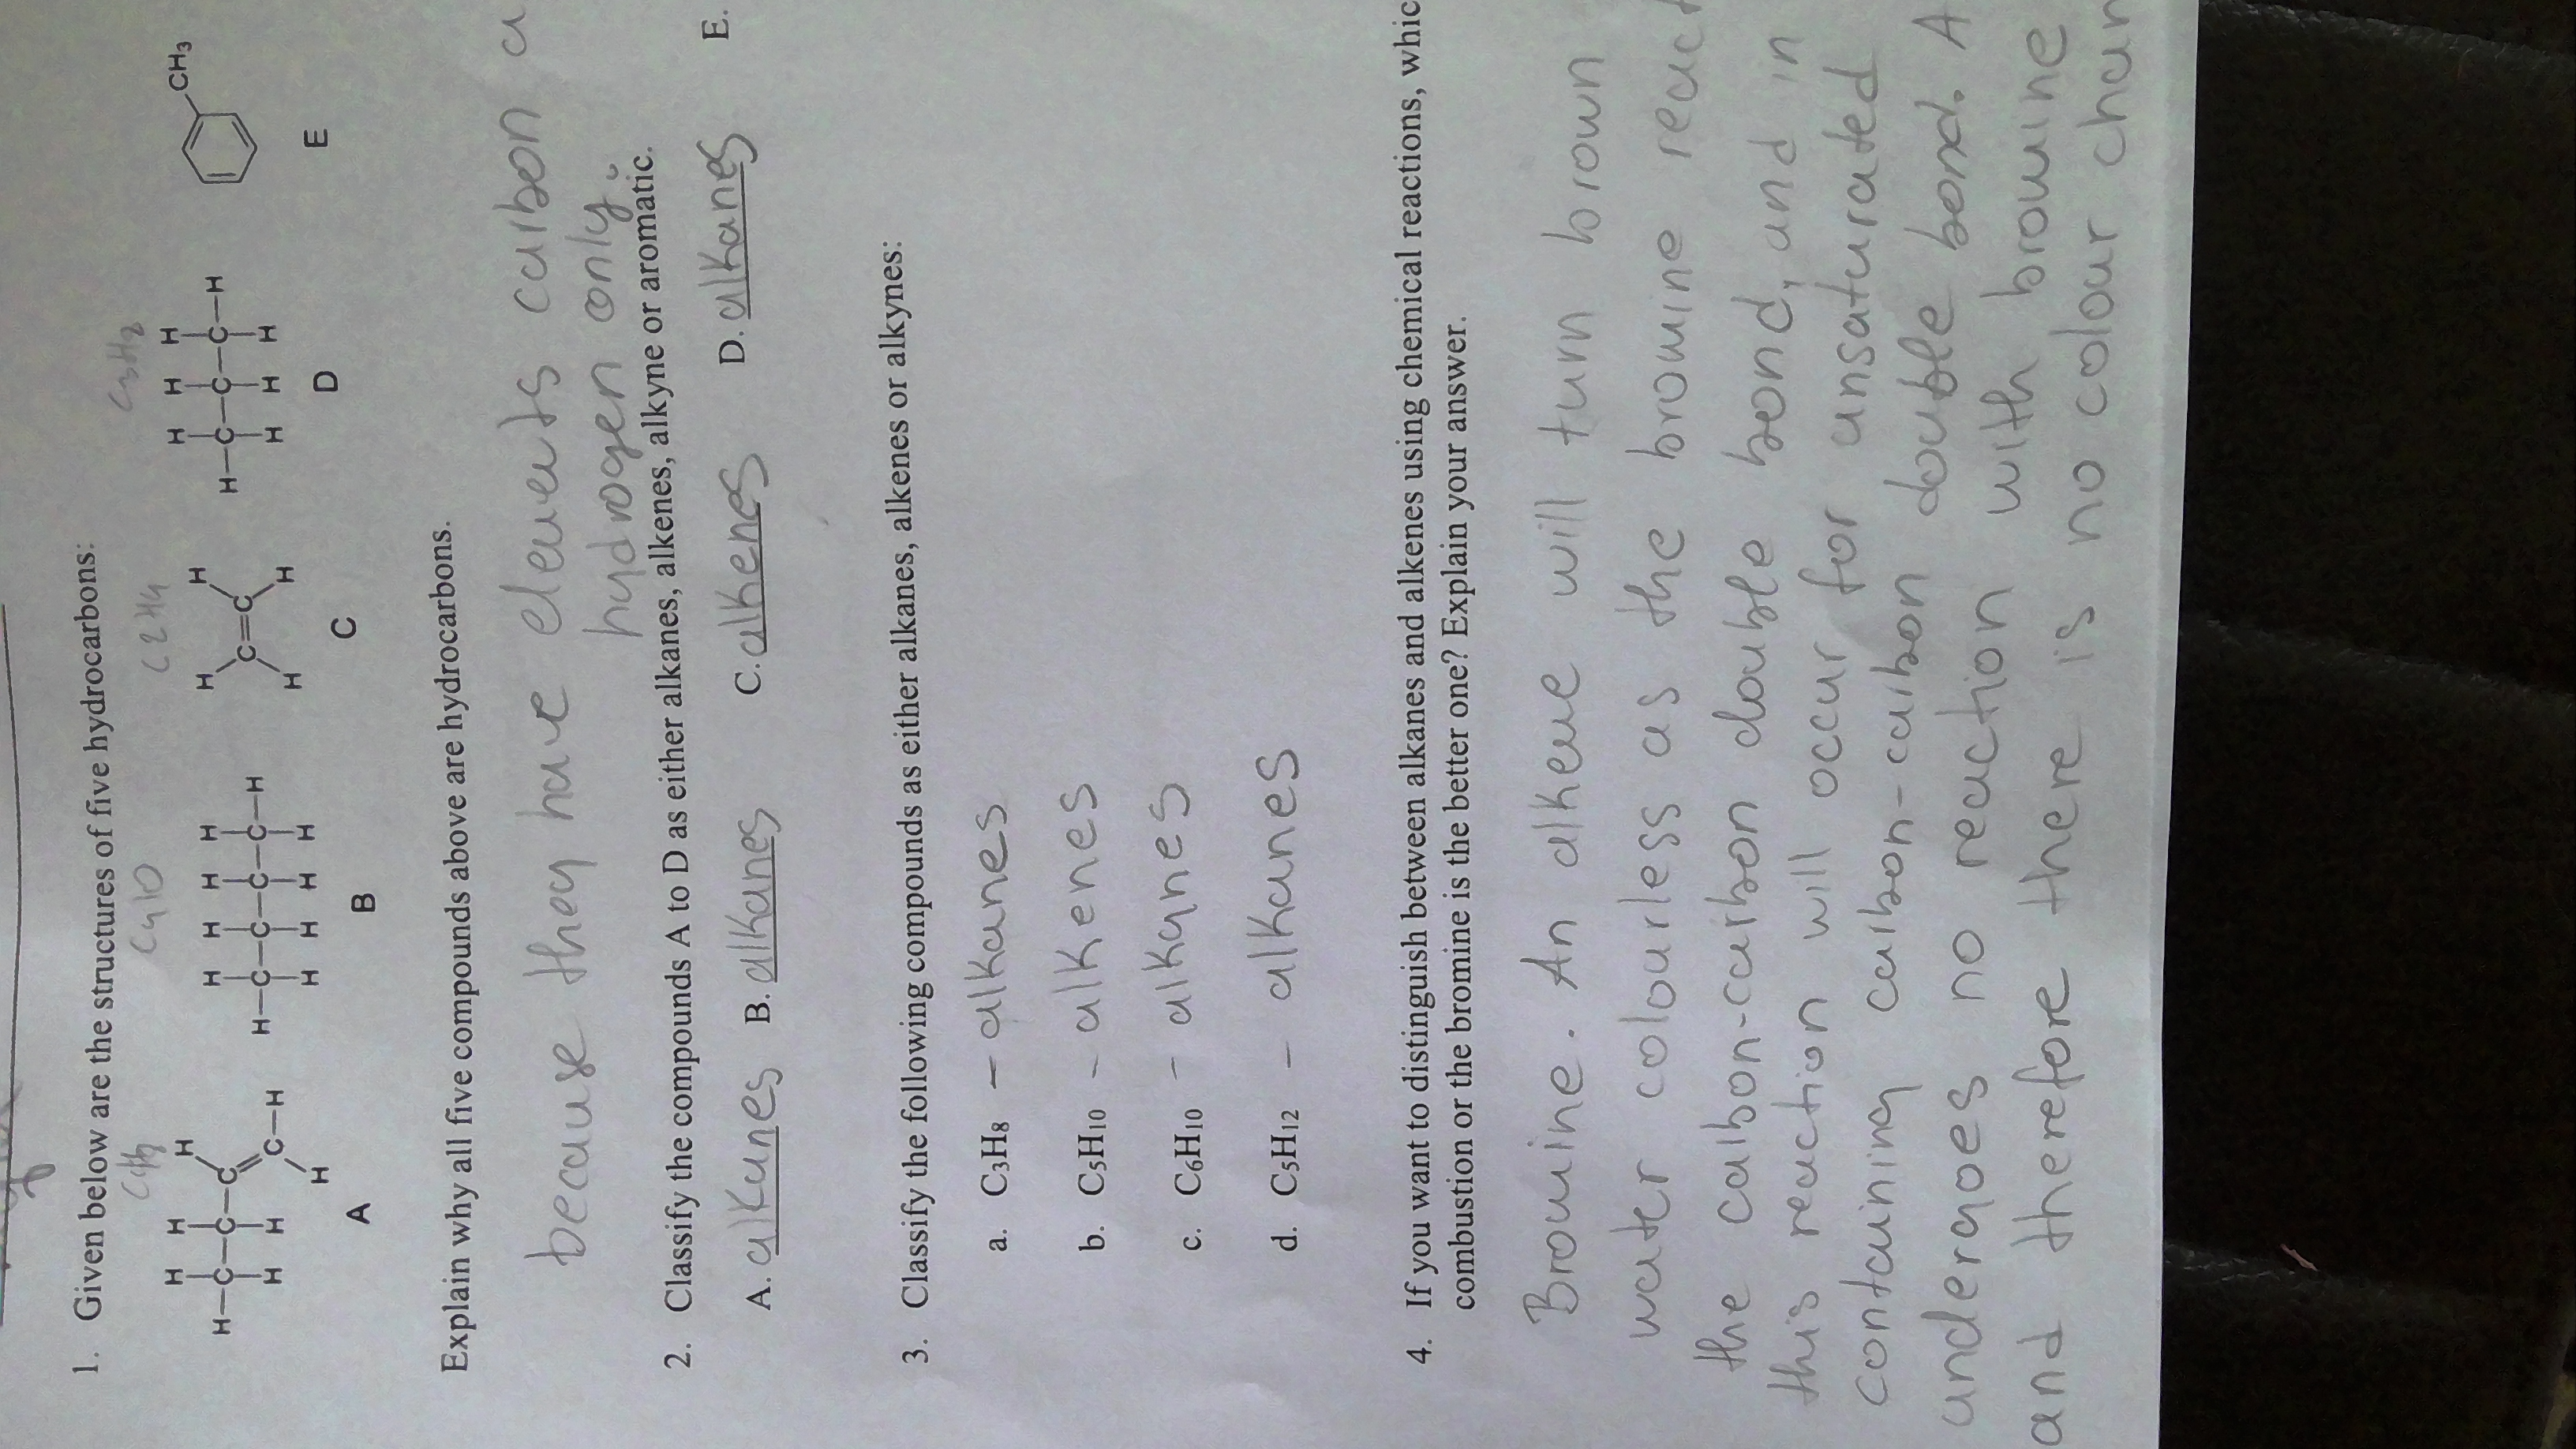 1. Given below are the structures of five hydrocarbons:
C4H8 C4 10 C2H4 C3H8
H H H
H-C-C-C
H H C-H
H
A
H H H H
H-C-C-C-C-H
H H H H
B
H H
C=C
H H
C
H H H
H-C-C-C-H
H H H
D
CH3
E
Explain why all five compounds above are hydrocarbons.
because they have elements carbon a
hydrogen only.
2. Classify the compounds A to D as either alkanes, alkenes, alkyne or aromatic.
A. alkanes B. alkanes C. alkenes D. alkanes E.
3. Classify the following compounds as either alkanes, alkenes or alkynes:
a. C3H8 - alkanes
b. C5H10 - alkenes
c. C6H10 - alkanes
d. C5H12 - alkanes
4. If you want to distinguish between alkanes and alkenes using chemical reactions, whic
combustion or the bromine is the better one? Explain your answer.
Bromine. An alkene will turn brown
water colourless as the bromine react
the carbon-carbon double bond, and in
this reaction will occur for unsaturated
containing carbon-carbon double bond. A
undergoes no reaction with bromine
and therefore there is no colour chan